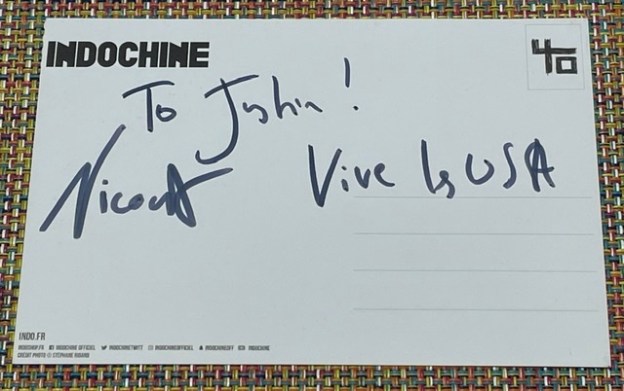 INDOCHINE
40
To Justin !
Nicola
Vive les USA
INDO.FR
INDOSHOP.FR INDOCHINE OFFICIEL INDOCHINETWITT INDOCHINEOFFICIEL INDOCHINEOFF INDOCHINE
CREDIT PHOTO © STEPHANE RIDARD